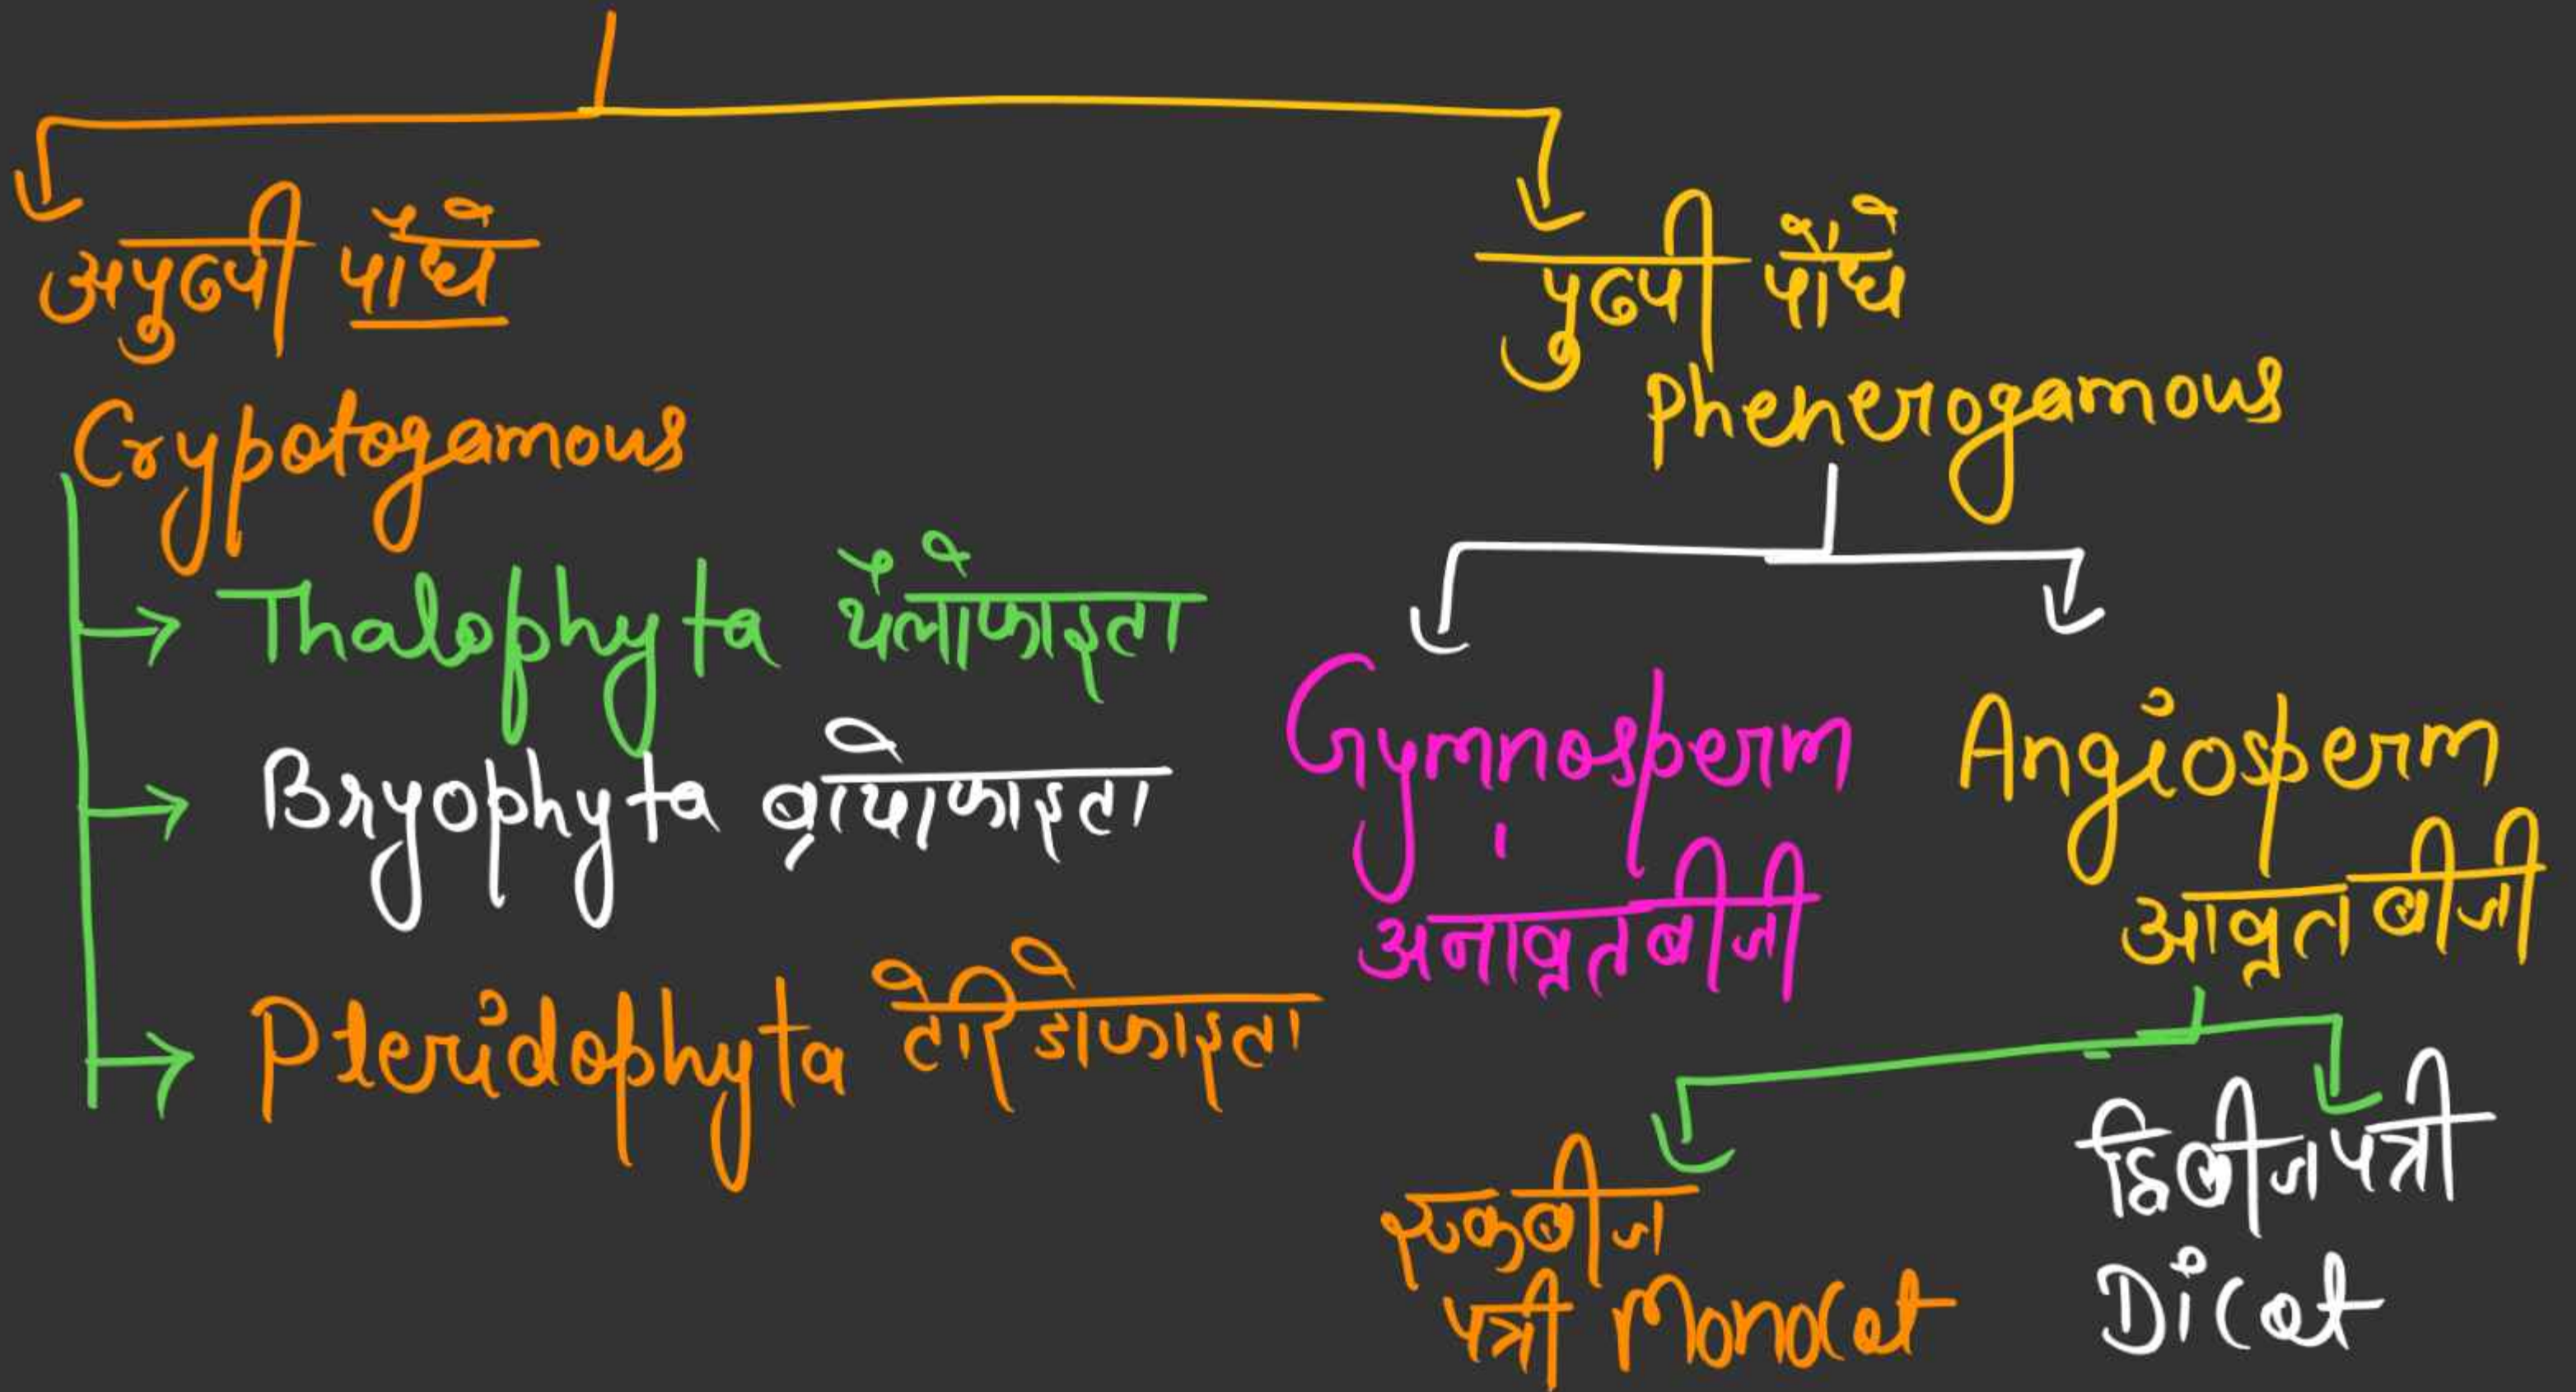 अपुष्पी पौधे
Crypotogamous
Thalophyta थैलोफाइटा
Bryophyta ब्रायोफाइटा
Pteridophyta टेरिडोफाइटा
पुष्पी पौधे
Phenerogamous
Gymnosperm
अनावृतबीजी
Angiosperm
आवृतबीजी
एकबीज
पत्री Monocot
द्विबीजपत्री
Dicot